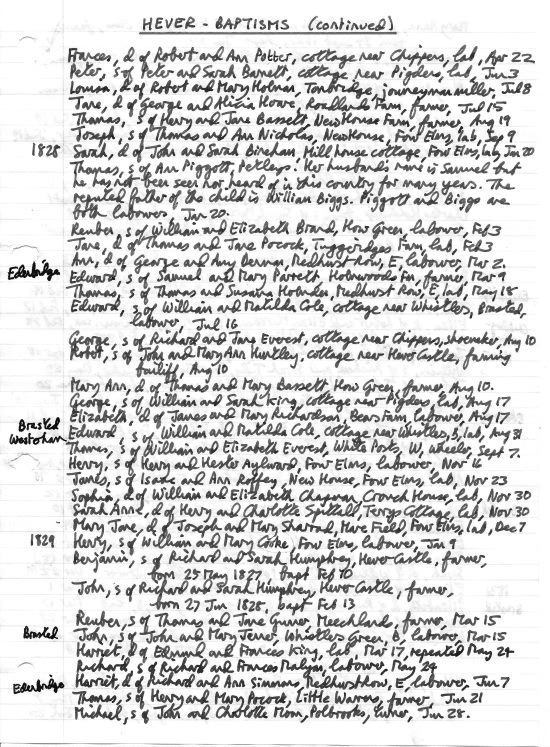 HEVER - BAPTISMS (continued)
Frances, d of Robert and Ann Potter, cottage near Chippers, lab, Apr 22
Peter, s of Peter and Sarah Barnett, cottage near Pigders, lab, Jun 3
Louisa, d of Robert and Mary Holman, Tonbridge, journeyman miller, Jul 8
Jane, d of George and Alicia Howe, Roodlands Farm, farmer, Jul 15
Thomas, s of Henry and Jane Bassett, New House Farm, farmer, Aug 19
Joseph, s of Thomas and Ann Nicholas, New House, Four Elms, lab, Sep 9
1828 Sarah, d of John and Sarah Bincham, Mill house cottage, Four Elms, lab, Jan 20
Thomas, s of Ann Piggott, Petleys. Her husband's name is Samuel but
he has not been seen nor heard of in this country for many years. The
reputed father of the child is William Biggs. Piggott and Biggs are
both labourers, Jan 20.
Reuben, s of William and Elizabeth Brand, How Green, labourer, Feb 3
Jane, d of Thomas and Jane Pocock, Tuggeridges Farm, lab, Feb 3
Edenbridge Ann, d of George and Amy Derman, Medhurst Row, E, labourer, Mar 2.
Edward, s of Samuel and Mary Parrett, Holmwoods Fm, farmer, Mar 9
Thomas, s of Thomas and Susanna Holmden, Medhurst Row, E, lab, May 18
Edward, s of William and Matilda Cole, cottage near Whistlers, Brasted,
labourer, Jul 16
George, s of Richard and Jane Everest, cottage near Chippers, shoemaker, Aug 10
Robert, s of John and Mary Ann Huntley, cottage near Hever Castle, farming
bailiff, Aug 10
Mary Ann, d of Thomas and Mary Bassett, How Green, farmer, Aug 10.
George, s of William and Sarah King, cottage near Pigders, lab, Aug 17
Elizabeth, d of James and Mary Richardson, Bears Farm, labourer, Aug 17
Brasted Edward, s of William and Matilda Cole, cottage near Whistlers, B, lab, Aug 31
Westerham Thomas, s of William and Elizabeth Everest, White Posts, W, wheeler, Sept 7.
Henry, s of Henry and Hester Aylward, Four Elms, labourer, Nov 16
James, s of Isaac and Ann Roffey, New House, Four Elms, lab, Nov 23
Sophia, d of William and Elizabeth Chapman, Crouch House, lab, Nov 30
Sarah Anne, d of Henry and Charlotte Spittall, Terrys Cottage, lab, Nov 30
Mary Jane, d of Joseph and Mary Sharrad, Mare Field, Four Elms, lab, Dec 7
1829 Henry, s of William and Mary Cooke, Four Elms, labourer, Jan 9
Benjamin, s of Richard and Sarah Humphrey, Hever Castle, farmer,
born 25 May 1827, bapt Feb 10
John, s of Richard and Sarah Humphrey, Hever Castle, farmer,
born 27 Jun 1828, bapt Feb 13
Reuben, s of Thomas and Jane Gunner, Meechlands, farmer, Mar 15
Brasted John, s of John and Mary Jenner, Whistlers Green, B, labourer, Mar 15
Harriet, d of Edmund and Frances King, lab, Mar 17, repeated May 24
Richard, s of Richard and Frances Malyan, labourer, May 24
Edenbridge Harriet, d of Richard and Ann Simmons, Medhurst Row, E, labourer, Jun 7
Thomas, s of Henry and Mary Pocock, Little Warrens, farmer, Jun 21
Michael, s of John and Charlotte Moon, Polbrooks, Jun 28.